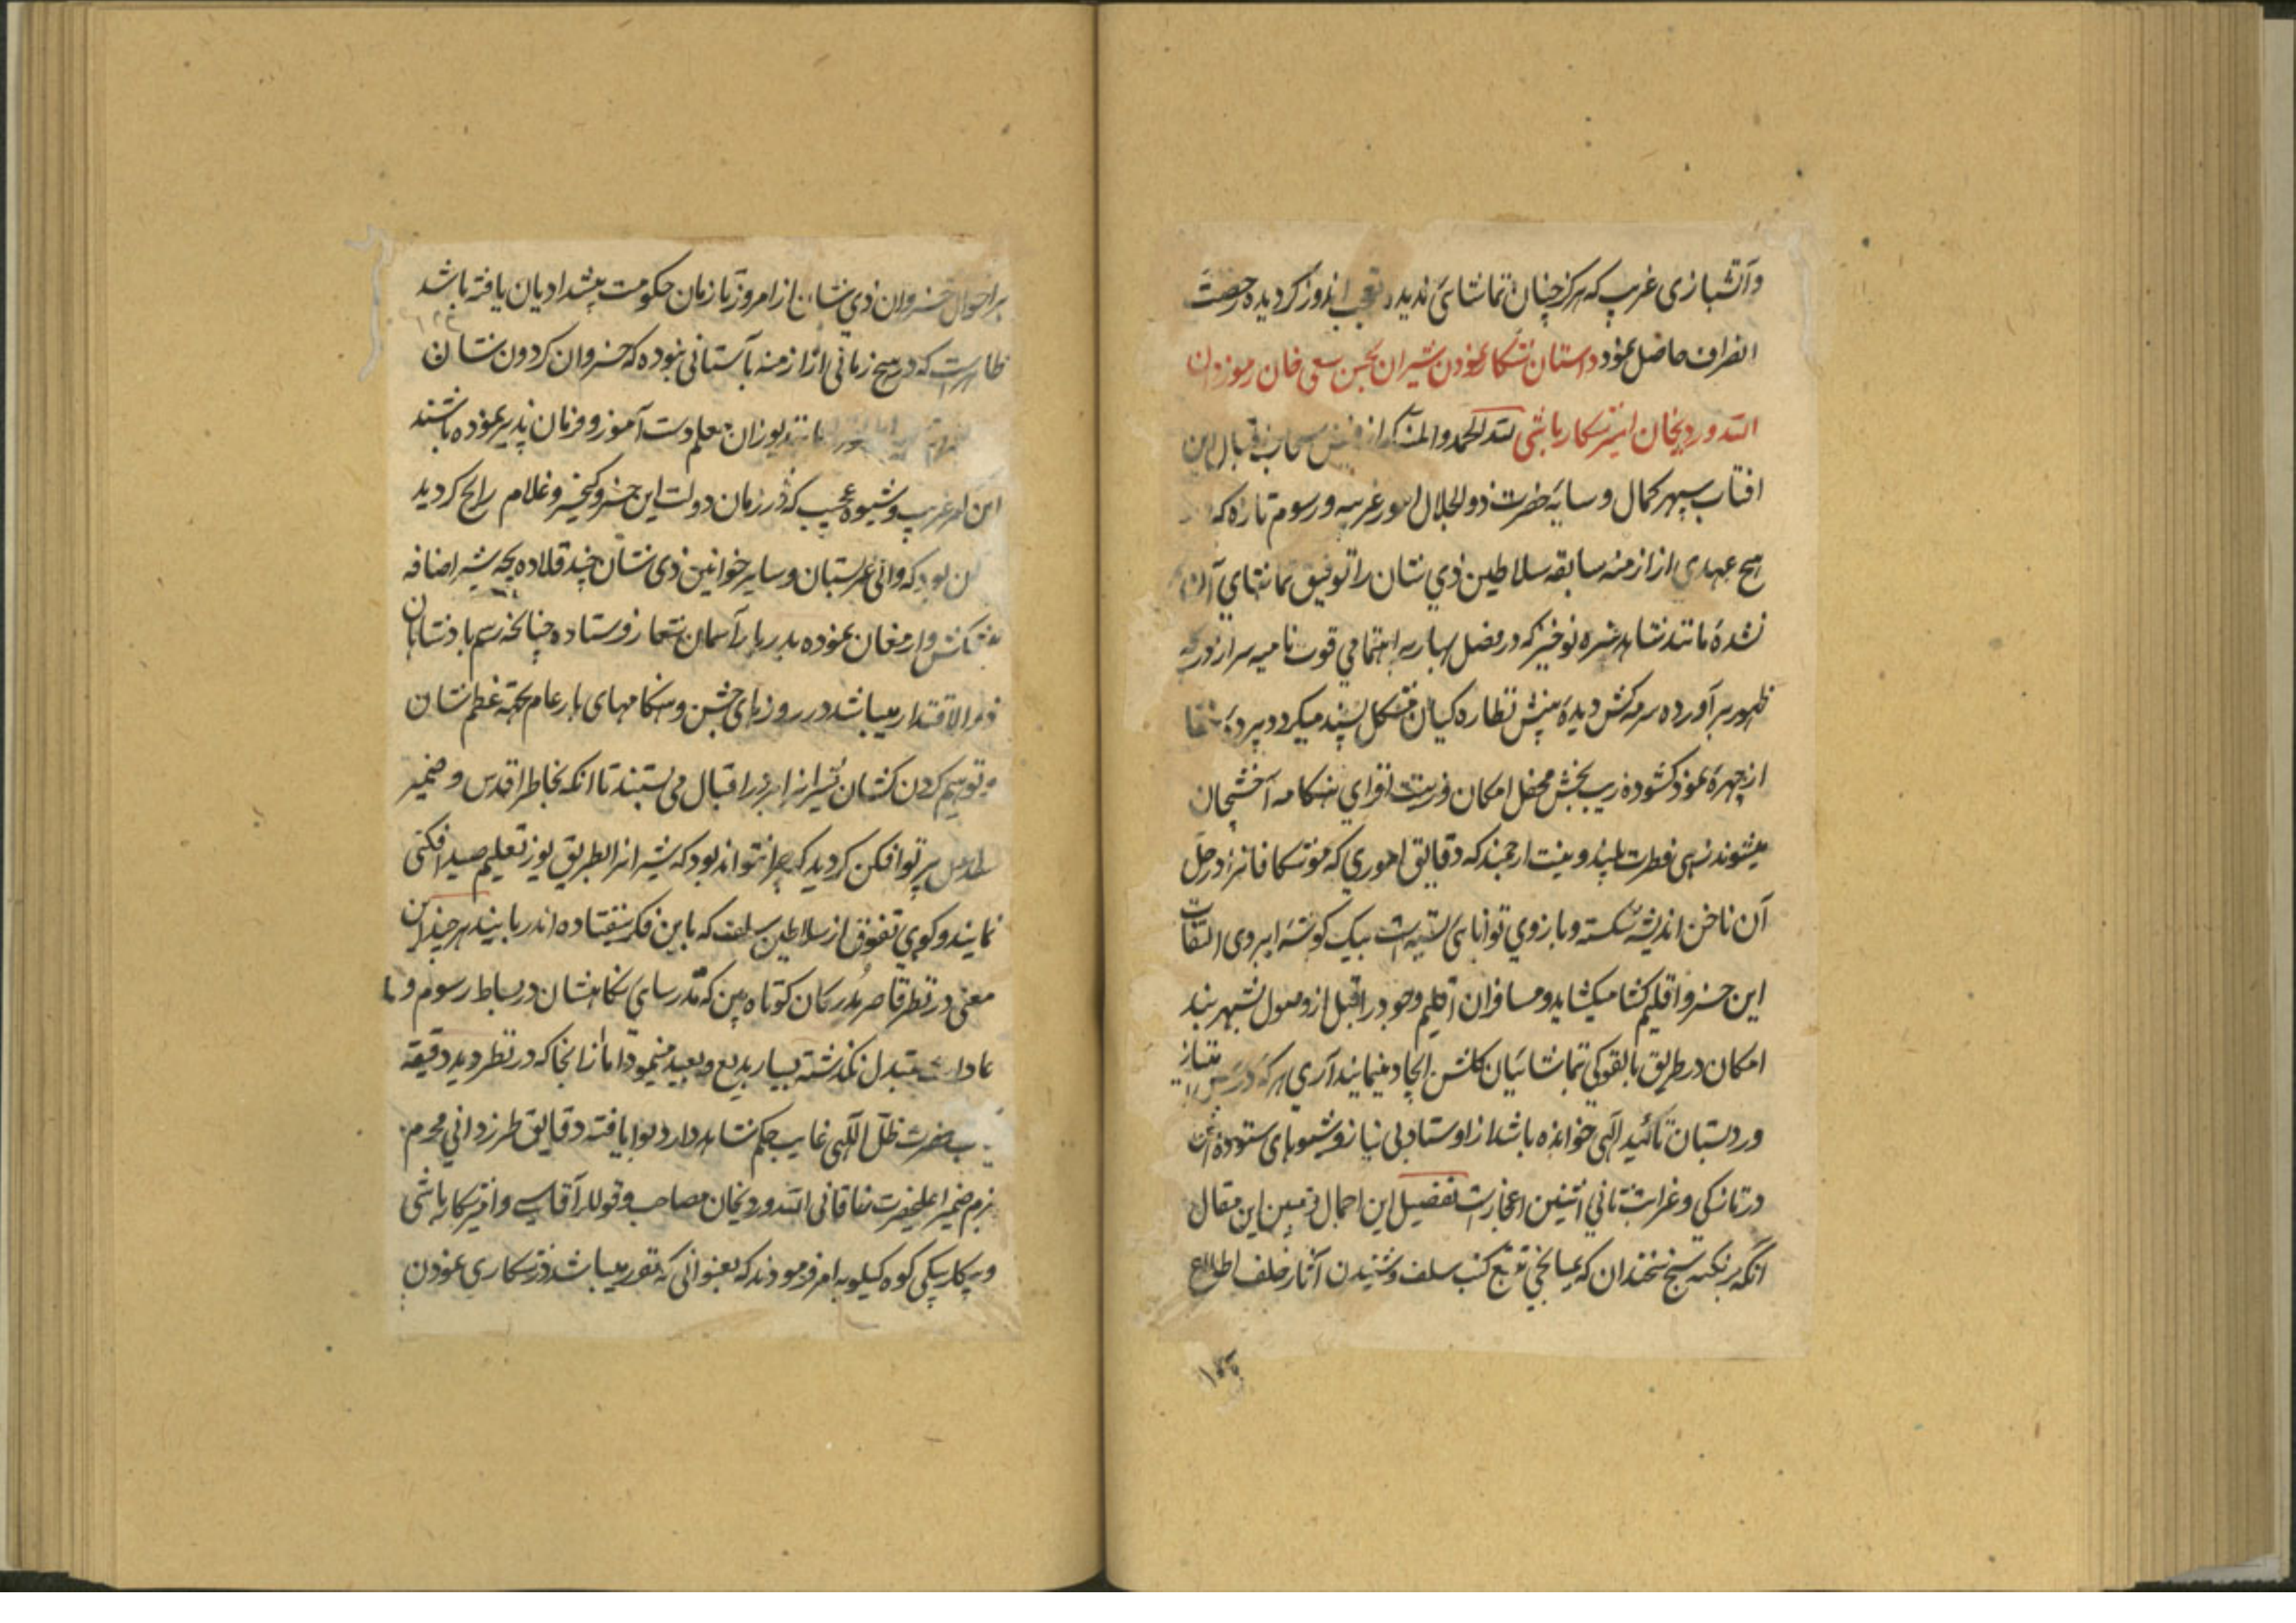 وآتشبازی غریب که هرکز چنان تماشای ندیده تعجب اندوز کردیده رخصت
انصراف حاصل نمود داستان شکار نمودن شیران بحسن سعی خان رموزدان
الله ویردیخان امیر شکار باشی لله الحمد والمنه که از فیض سحاب اقبال این
افتاب سپهر کمال و سایهٔ حضرت ذوالجلال امور غریبه و رسوم تازه که
هیچ عهدی از ازمنه سابقه سلاطین ذی شان را توفیق تماشای آن
نشده مانند شاهد سبزه نوخیز که در فصل بهار به اهتمامی قوت نامیه سر از
ظهور برآورده سرمه کش دیدهٔ بینش نظاره کیان مشکل پسند میکردد پردهٔ خفا
از چهرهٔ نمود کشوده زیب بخش محفل امکان و زینت افزای هنکامه آخشیجان
میشوند زهی فطرت بلند و بینت ارجمند که دقایق اموری که موشکافانرا در حل
آن ناخن اندیشه شکسته و بازوی توانایی بسته است بیک کوشهٔ ابروی التفات
این خسرو اقلیم کشا میکشاید و مسافران اقلیم وجود را قبل از وصول بشهربند
امکان در طریق بالقوکی تماشائیان کلشن ایجاد مینماید آری هر که درس امتیاز
در دبستان تائید آلهی خوانده باشد از اوستاد بی نیاز و شیوهای ستوده اش
در تازکی و غرابت ثانی اثنین اعجاز است تفصیل این اجمال و تبیین این مقال
آنکه بر نکته سنج سخندان که بمیانجی تتبع کتب سلف و شنیدن آثار خلف اطلاع
۱۵۵
بر احوال خسروان ذی شان از امروز تا زمان حکومت پیشدادیان یافته باشد
ظاهر است که در هیچ زمانی از ازمنه باستانی نبوده که خسروان کردون نشان
مانند یوزان معلم دست آموز و فرمان پذیر نموده باشند
این امر غریب و شیوه عجیب که در زمان دولت این خسرو کیخسرو غلام رایج کردید
آن بود که والی عربستان و سایر خوانین ذی شان چند قلاده بچه شیر اضافه
پیشکش و ارمغان نموده بدربار آسمان شعار فرستاده چنانچه رسم پادشاهان
ذوالاقتدار میباشد در روزهای جشن و هنکامهای بار عام بجهة عظم شان
و توهیم کردن کشان شیرانرا بر در اقبال می بستند تا انکه بخاطر اقدس و ضمیر
پرتو افکن کردید که چرا نتواند بود که شیرانرا بطریق یوز تعلیم صید افکنی
نمایند و کوی تفوق از سلاطین سلف که باین فکر نیفتاده اند ربایند هر چند این
معنی در نظر قاصر مدرکان کوتاه بین که قد رسای نکاهشان در بساط رسوم و
عادات متبدل نکذشته بسیار بدیع و بعید مینمود اما از انجا که در نظر دید دقیقه
یاب حضرت ظل اللهی غایب حکم شاهد دارد و نایافته دقایق طرزدانی محرم
بزم ضمیر اعلیحضرت خاقانی الله ویردیخان مصاحب و قوللر آقاسی و امیر شکار باشی
و بیکلربیکی کوه کیلویه امر فرمودند که بعنوانی که مقرر میباشد در شکاری نمودن